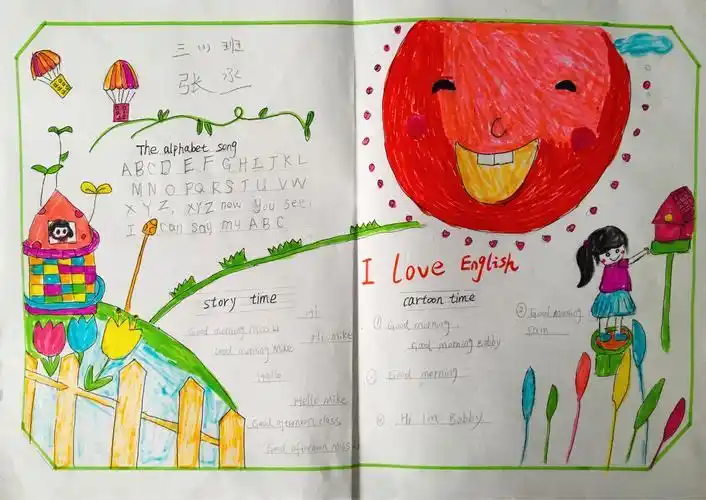 三(八)班
张丞
The alphabet song
A B C D E F G H I J K L
M N O P Q R S T U V W
X Y Z, XYZ now you see,
I can say my A B C
I love English
story time
Hi
Good morning
Hi Mike
Good morning Mike
Hello
Hello Mike
Good afternoon class
Good afternoon Miss
cartoon time
① Good morning
Good morning Bobby
② Good morning
Sam
Good morning
Hi I'm Bobby